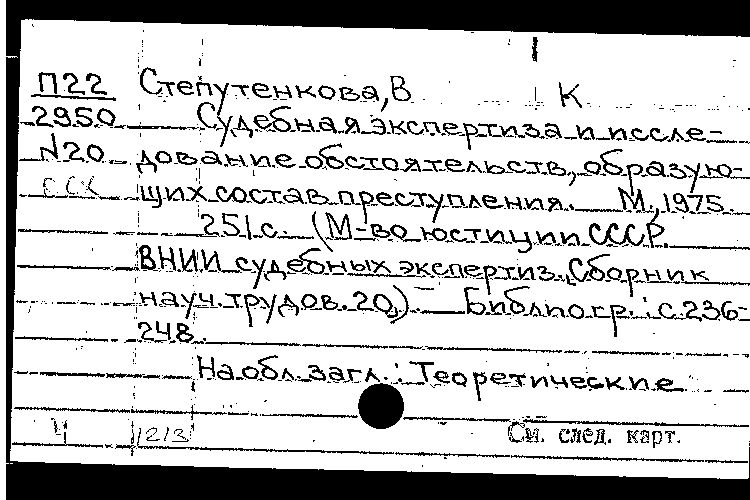 П22 Степутенкова, В К
2950 Судебная экспертиза и иссле-
N20 дование обстоятельств, образую-
ССХ щих состав преступления. М., 1975.
251 с. (М-во юстиции СССР.
ВНИИ судебных экспертиз. Сборник
науч. трудов. 20). — Библиогр.: с 236-
248.
На обл. загл.: Теоретические
Ч 1213 См. след. карт.